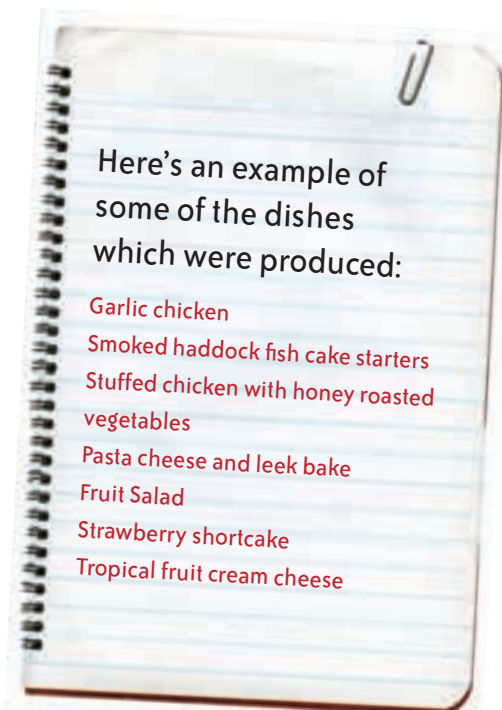 Here’s an example of
some of the dishes
which were produced:
Garlic chicken
Smoked haddock fish cake starters
Stuffed chicken with honey roasted
vegetables
Pasta cheese and leek bake
Fruit Salad
Strawberry shortcake
Tropical fruit cream cheese